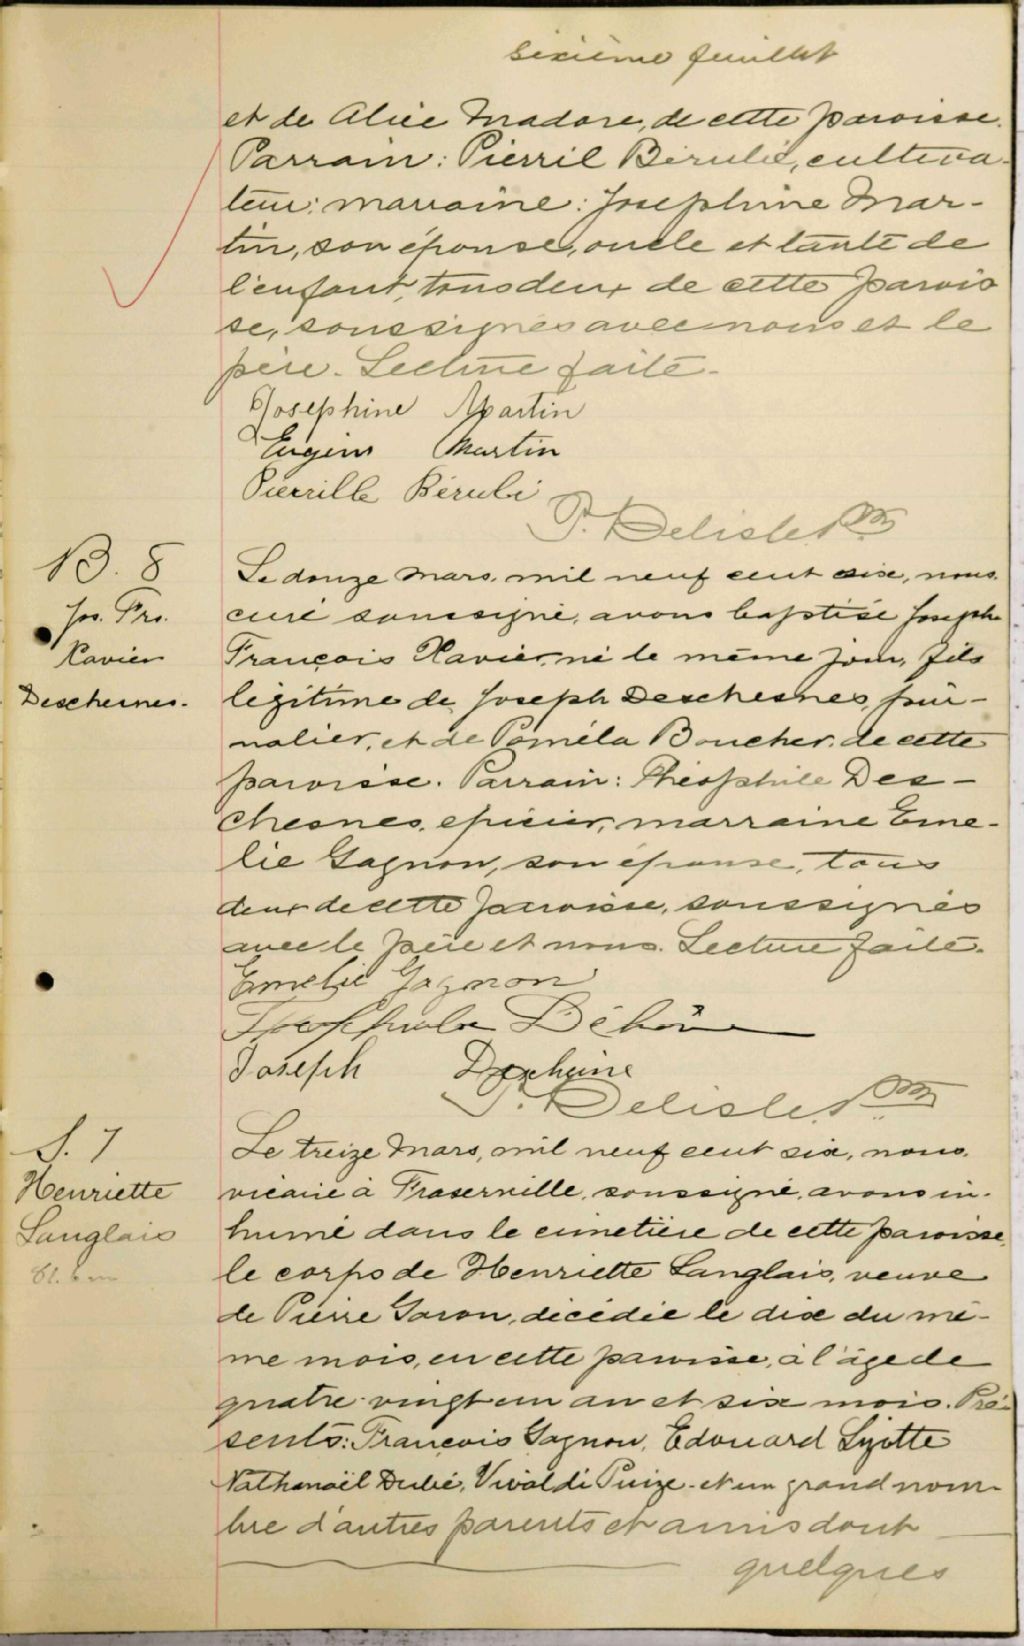 sixième feuillet
et de Alice Madore, de cette paroisse.
Parrain: Pierril Bérubé, cultiva-
teur; marraine: Josephine Mar-
tin, son épouse, oncle et tante de
l'enfant, tous deux de cette parois
se, soussignés avec nous et le
père. Lecture faite.
Josephine Martin
Eugène Martin
Pierrille Bérubé
P. Delisle Ptre
B. 8
Jos. Frs.
Xavier
Deschesnes.
Le douze mars, mil neuf cent six, nous,
curé soussigné, avons baptisé Joseph
François Xavier, né le même jour, fils
légitime de Joseph Deschesnes, jour-
nalier, et de Paméla Boucher, de cette
paroisse. Parrain: Théophile Des-
chesnes, epicier, marraine Eme-
lie Gagnon, son épouse, tous
deux de cette paroisse, soussignés
avec le père et nous. Lecture faite.
Emelie Gagnon
Joseph
P. Delisle, Ptre
S. 7
Henriette
Langlais
81. 6 m
Le treize mars, mil neuf cent six, nous,
vicaire à Fraserville, soussigné, avons in-
humé dans le cimetière de cette paroisse,
le corps de Henriette Langlais, veuve
de Pierre Garon, décédée le dix du mê-
me mois, en cette paroisse, à l'âge de
quatre-vingt-un an et six mois. Pré-
sents: François Gagnon, Edouard Lizotte
Nathanaël Dubé, Vivaldi Puize et un grand nom-
bre d'autres parents et amis dont
quelques